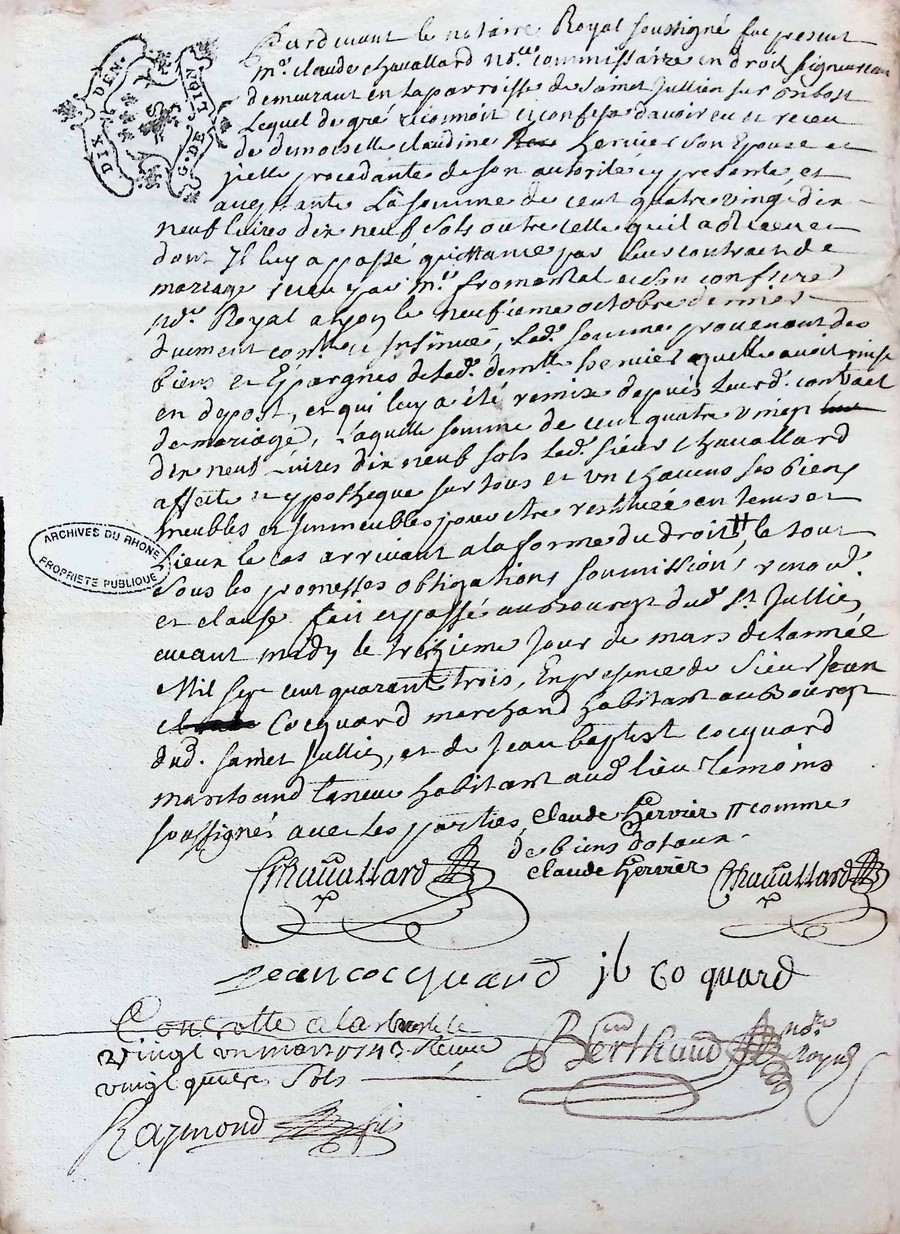 DIX DEN.
G. DE LION
Pardevant le notaire Royal soussigné fut present
m.e claude chavallard no.re commissaire en droit seigneuriau
demeurant en la parroisse de Saint Jullien sur
Lequel de gré reconnoit et confesse d'avoir eu et receu
de demoiselle claudine hervier son Epouse et
d'jcelle procedante de son autorité cy presente, et
acceptante La somme de cent quatre vingt dix
neuf livres dix neuf sols outre celle qu'il a
dont Il luy a passé quittance par leur contract de
mariage receu par m.e fromental et son confrere
no.re Royal a Lyon le neufieme octobre dernier
duement cont.lé et Insinué, Lad. somme provenant des
biens et Epargnes de lad. dem.lle hervier
en depost, et qui luy a été remise depuis leurd. contract
de mariage, Laquelle somme de cent quatre vingt
dix neuf livres dix neuf sols led. sieur chavallard
affecte et ypotheque sur tous et un chacuns ses biens
meubles et immeubles pour etre restituée en tems et
Lieux le cas arrivant a la forme du droit # le tout
sous les promesses obligations soumissions, renon.
et clause fait et passé au Bourg dud. St. Jullien
avant midy le treizieme Jour de mars de l'année
Mil sept cent quarant trois, En presence de sieur Jean
Cocquard marchand habitant au Bourg
dud. Saint Jullien, et de Jean baptist cocquard
marchand taneur habitant aud. lieu temoins
soussignés avec les parties, claude hervier # comme
de biens dotaux.
Chavallard claude hervier Chavallard
Jean cocquard jb Coquard
Controllé a la
vingt un mars 1743. Receu
vingt quatre sols
Berthaud no.re Royal
Raymond
ARCHIVES DU RHONE
PROPRIETE PUBLIQUE